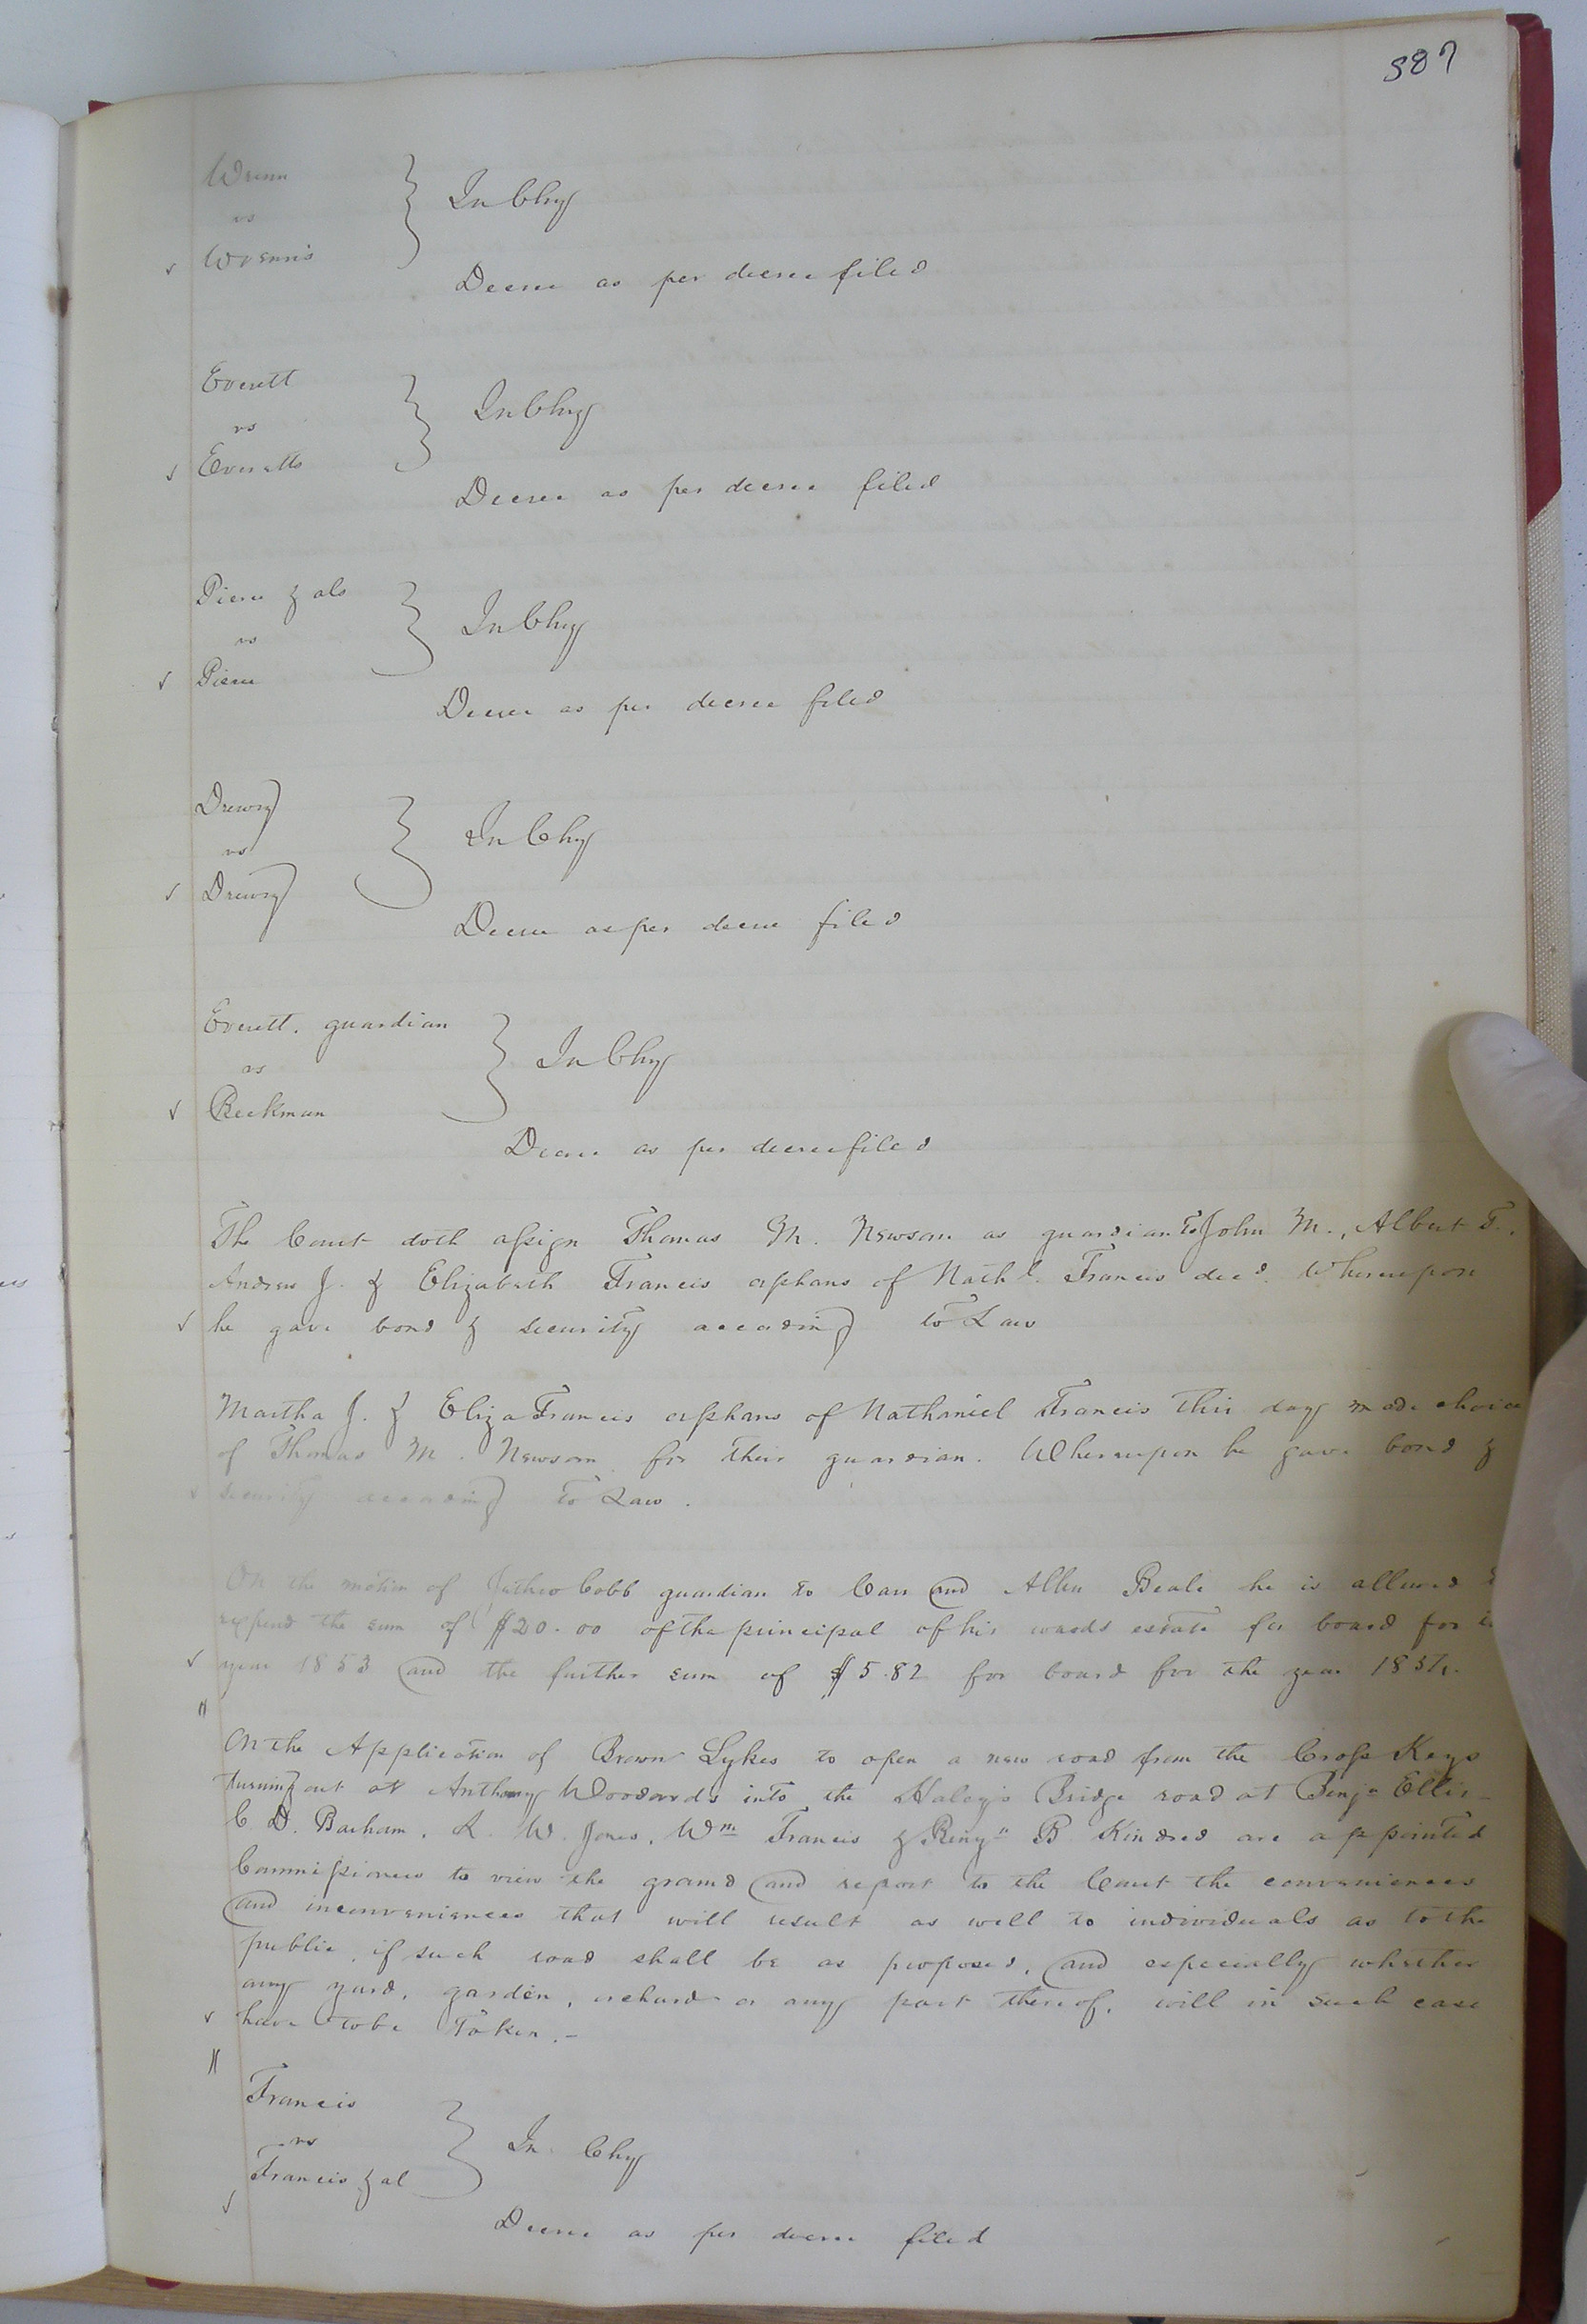 587
Wrenn
vs
Wrenns
In Chy
Decree as per decree filed
Everett
vs
Everetts
In Chy
Decree as per decree filed
Pierce & als
vs
Pierce
In Chy
Decree as per decree filed
Drewry
vs
Drewry
In Chy
Decree as per decree filed
Everett. guardian
vs
Beekman
In Chy
Decree as per decree filed
The Court doth assign Thomas M. Newsom as guardian to John M., Albert F.,
Andrew J. & Elizabeth Francis orphans of Nathl. Francis decd. Whereupon
he gave bond & security according to Law
Martha J. & Eliza Francis orphans of Nathaniel Francis this day made choice
of Thomas M. Newsom for their guardian. Whereupon he gave bond &
security according to Law.
On the motion of Jethro Cobb guardian to and Allen Beale he is allowed
expend the sum of $20.00 of the principal of his wards estate for board for
year 1853 and the further sum of $5.82 for board for the year 1854.
On the Application of Brown Sykes to open a new road from the Cross Keys
turning out at Anthony Woodards into the Haley's Bridge road at Benja Ellis -
C. D. Barham, R. W. Jones, Wm Francis & Benjn B Kindred are appointed
Commissioners to view the ground and report to the Court the conveniences
and inconveniences that will result as well to individuals as to the
public, if such road shall be as proposed, and especially whether
any yard, garden, orchard or any part thereof, will in such case
have to be Taken. -
Francis
vs
Francis & al
In Chy
Decree as per decree filed